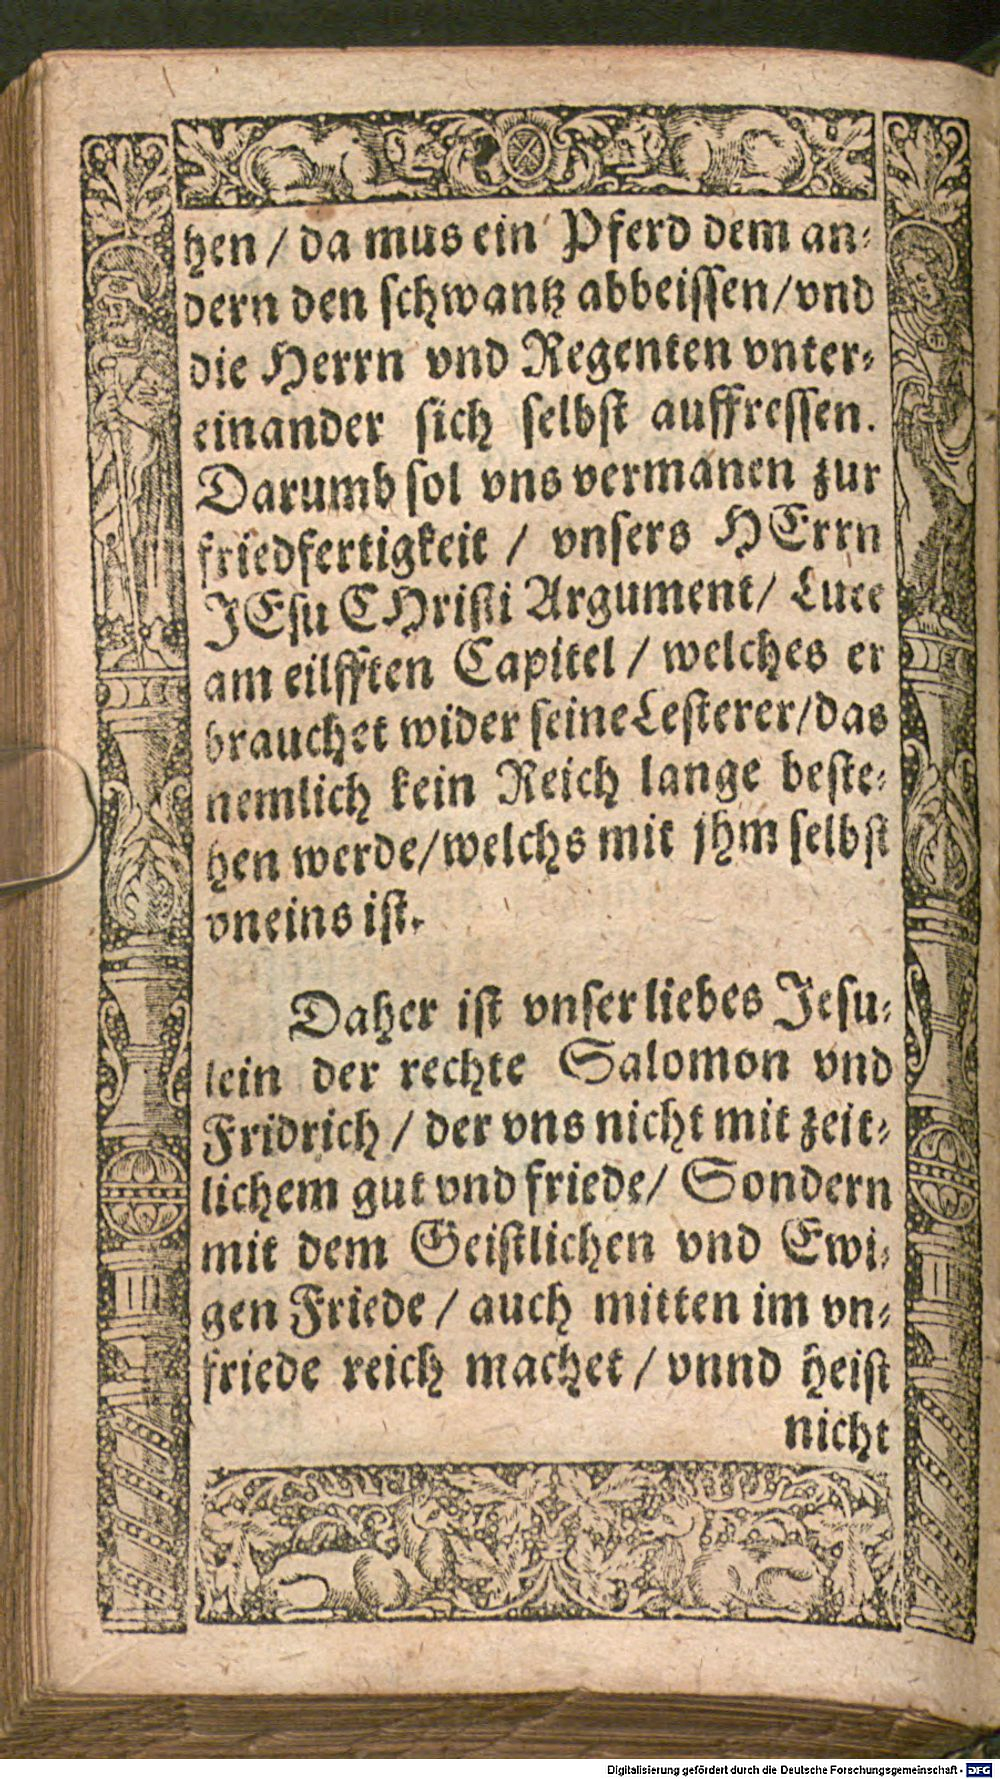 hen / da mus ein Pferd dem an⸗
dern den schwantz abbeissen / vnd
die Herrn vnd Regenten vnter⸗
einander sich selbst auffressen.
Darumb sol vns vermanen zur
friedfertigkeit / vnsers HErrn
JEsu CHristi Argument / Luce
am eilfften Capitel / welches er
brauchet wider seine Lesterer / das
nemlich kein Reich lange beste⸗
hen werde / welchs mit jhm selbst
vneins ist.
Daher ist vnser liebes Jesu⸗
lein der rechte Salomon vnd
Fridrich / der vns nicht mit zeit⸗
lichem gut vnd friede / Sondern
mit dem Geistlichen vnd Ewi⸗
gen Friede / auch mitten im vn⸗
friede reich machet / vnnd heist
nicht
Digitalisierung gefördert durch die Deutsche Forschungsgemeinschaft - DFG